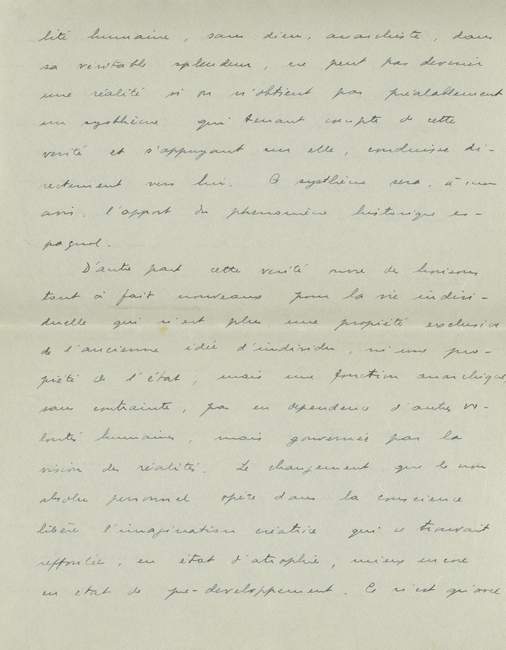 lité humaine, sans dieu, anarchiste, dans
sa veritable splendeur, ne peut pas devenir
une réalité si on n'obtient pas préalablement
un systhème qui tenant compte de cette
verité et s'appuyant sur elle, conduise di-
rectement vers lui. Ce systhème sera, à mon
avis, l'apport du phenomène historique es-
pagnol.
D'autre part cette verité ouvre de horizons
tout à fait nouveaux pour la vie indivi-
duelle qui n'est plus une propriété exclusive
de l'ancienne idée d'individu, ni une pro-
piété de l'état, mais une fonction anarchique,
sans contrainte, pas en dependence d'autres vo-
lontés humaines, mais gouvernée par la
vision des réalités. Le changement que le non
absolu personnel opère dans la conscience
libère l'imagination créatrice qui se trouvait
reffoulée, en état d'atrophie, mieux encore
en état de pre-developpement. Ce n'est qu'avec